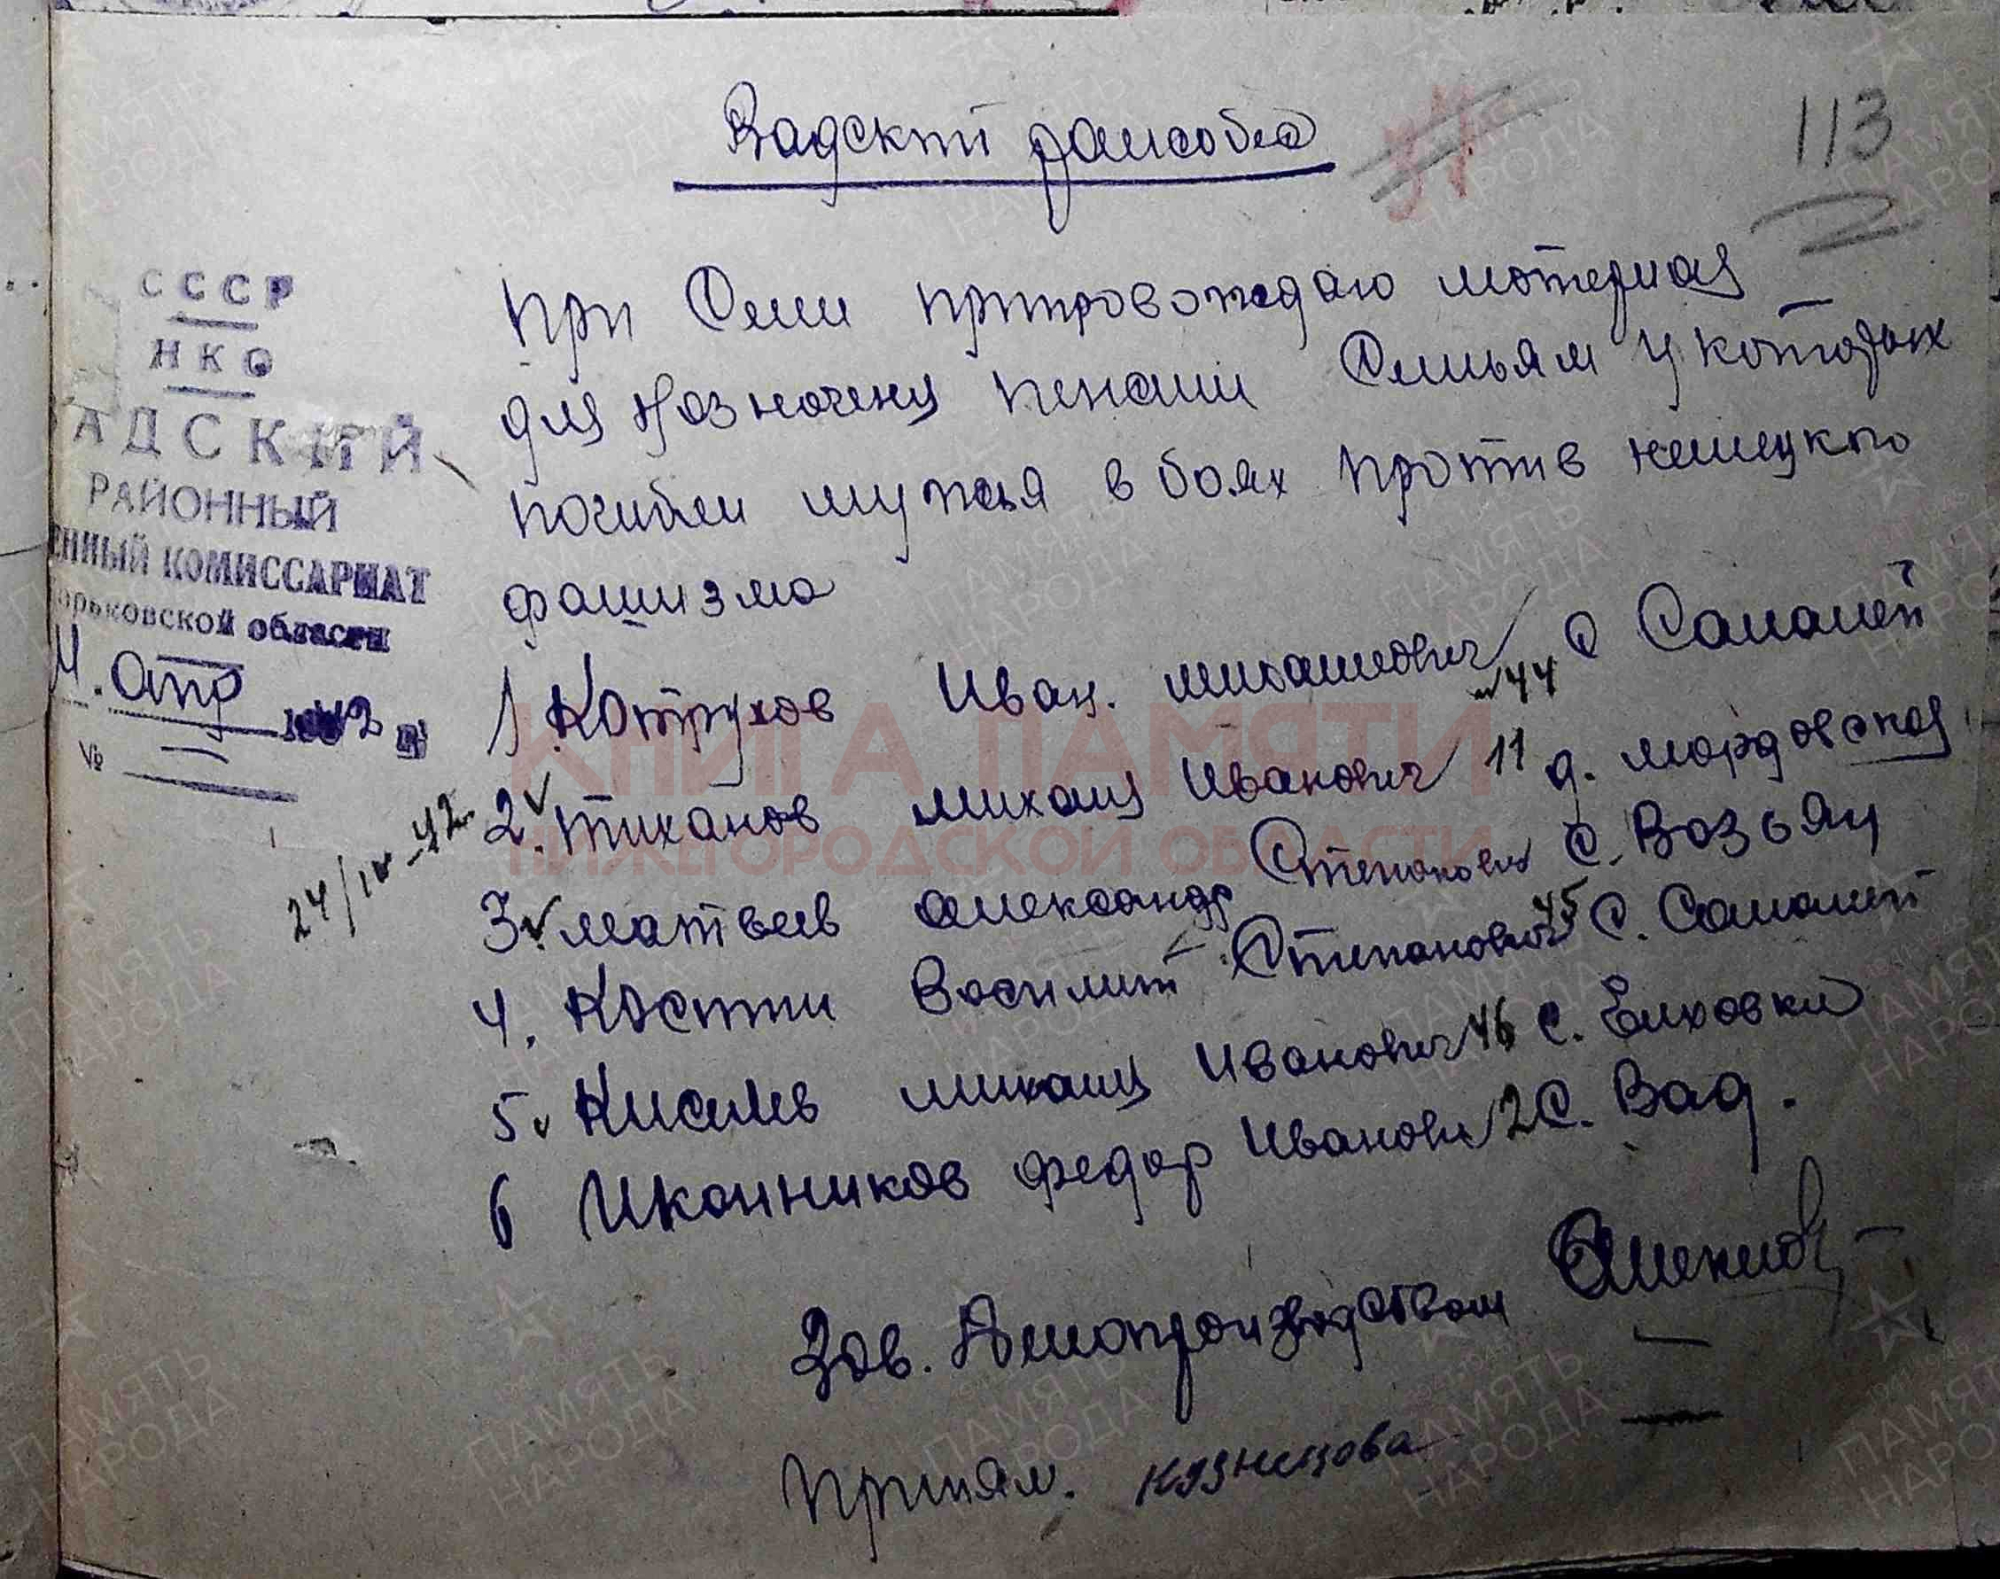 Вадский райсобес
113
СССР
НКО
АДСКИЙ
РАЙОННЫЙ
ЕННЫЙ КОМИССАРИАТ
орьковской области
Апр 1942 г
№
24/IV-42
При Сем припровождаю материал
для Назначения пенсии Семьям у которых
погибли мужья в боях против немецкго
фашизма
1 Котрухов Иван. михаилович 44 С Салалей
2. тиханов михаил Иванович 11 д. мордовская
3. матвеев александр Степанович С. Возьян
4. Костин Василий Степанович 45 С. Салалей
5. Киселев михаил Иванович 46 С. Елховка
6 Иконников федор Иванович 2 С. Вад.
Зав. Делопроизводством
Принял. Кузнецова
КНИГА ПАМЯТИ
НИЖЕГОРОДСКОЙ ОБЛАСТИ
ПАМЯТЬ НАРОДА